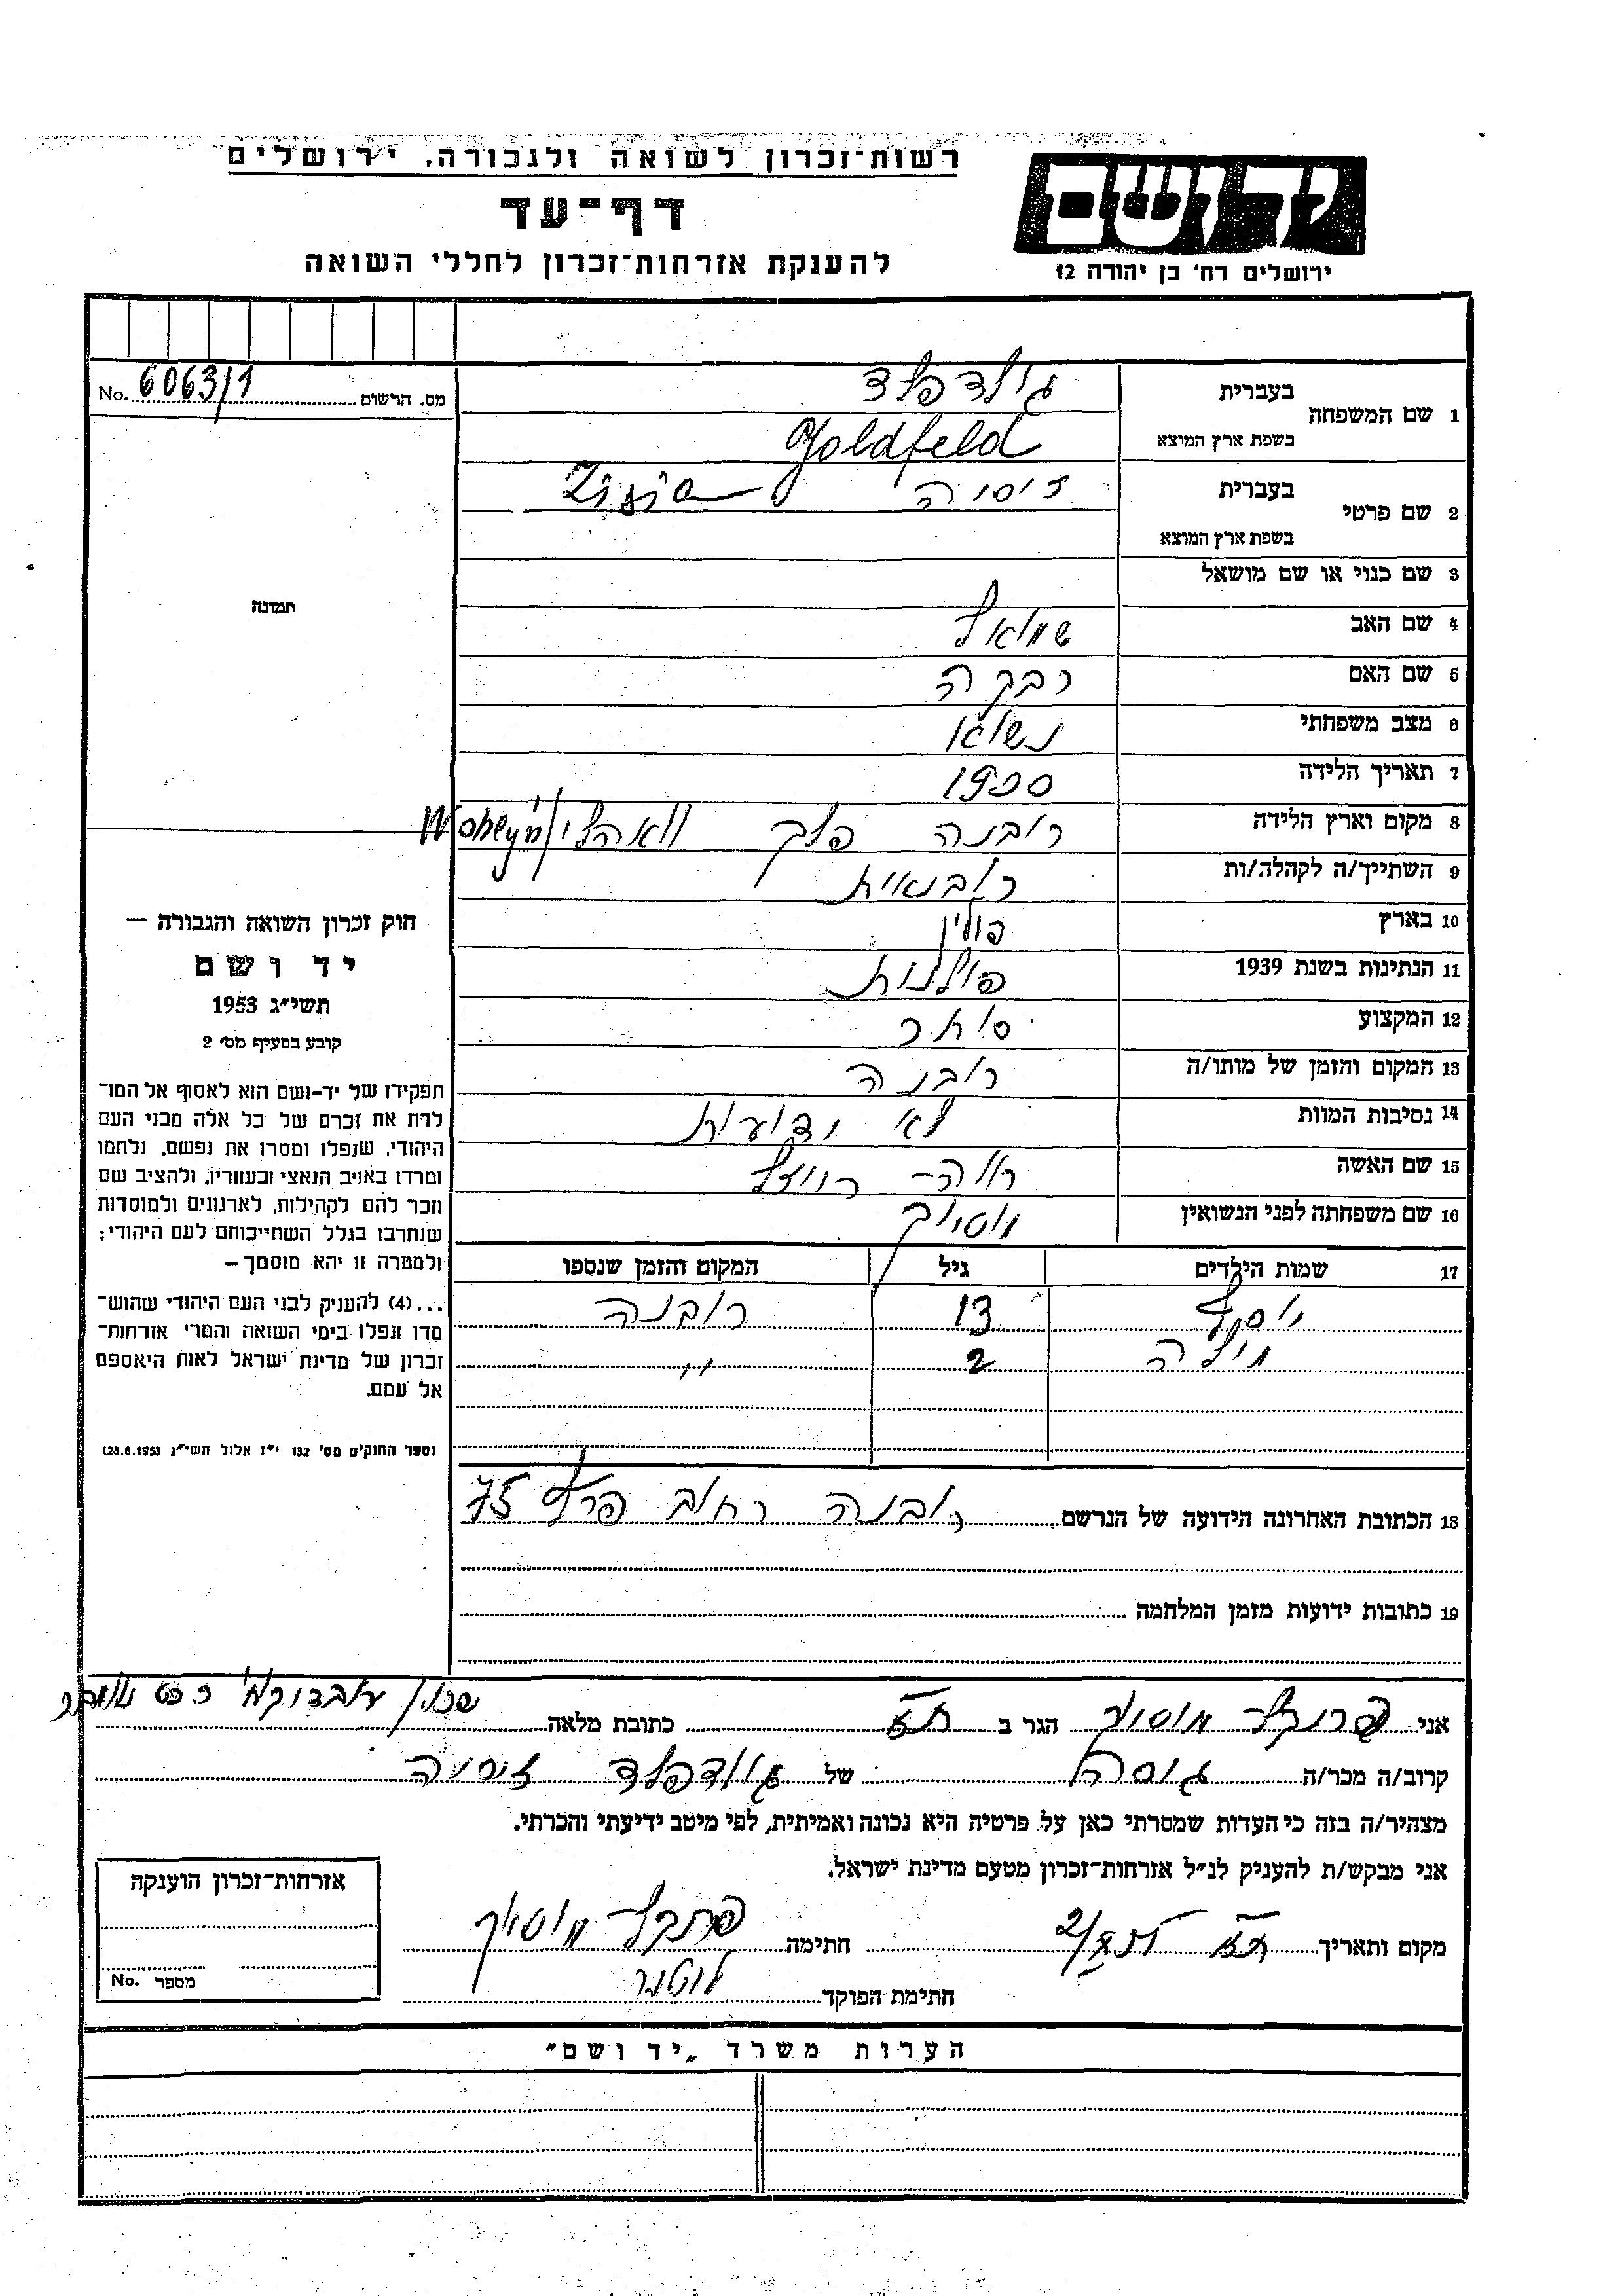 רשות־זכרון לשואה ולגבורה, ירושלים
דף־עד
להענקת אזרחות־זכרון לחללי השואה
יד ושם
ירושלים רח' בן יהודה 12
No. 6063/1 מס. הרשום
1 שם המשפחה
בעברית גולדפלד
בשפת ארץ המוצא Goldfeld
2 שם פרטי
בעברית זיסיה Zizia
בשפת ארץ המוצא
3 שם כנוי או שם מושאל
4 שם האב שמואל
5 שם האם רבקה
6 מצב משפחתי נשוא
7 תאריך הלידה 1900
8 מקום וארץ הלידה רובנה פלך
9 השתייך/ה לקהלה/ות רובנאית
10 בארץ פולין
11 הנתינות בשנת 1939 פולנית
12 המקצוע סוחר
13 המקום והזמן של מותו/ה רובנה
14 נסיבות המוות לא ידועות
15 שם האשה
16 שם משפחתה לפני הנשואין מוסיוק
17 שמות הילדים גיל המקום והזמן שנספו
יוסף 13 רובנה
2 "
18 הכתובת האחרונה הידועה של הנרשם רובנה רחוב 75
19 כתובות ידועות מזמן המלחמה
תמונה
חוק זכרון השואה והגבורה —
יד ושם
תשי"ג 1953
קובע בסעיף מס' 2
תפקידו של יד-ושם הוא לאסוף אל המו־
לדת את זכרם של כל אלה מבני העם
היהודי, שנפלו ומסרו את נפשם, נלחמו
ומרדו באויב הנאצי ובעוזריו, ולהציב שם
וזכר להם לקהילות, לארגונים ולמוסדות
שנחרבו בגלל השתייכותם לעם היהודי;
ולמטרה זו יהא מוסמך —
...(4) להעניק לבני העם היהודי שהוש־
מדו ונפלו בימי השואה והמרי אזרחות־
זכרון של מדינת ישראל לאות היאספם
אל עמם.
(ספר החוקים מס' 132 י"ז אלול תשי"ג 28.8.1953)
אני פרנקל מוסיוק הגר ב ת"א כתובת מלאה שכון
קרוב/ה מכר/ה גיסה של גולדפלד זיסיה
מצהיר/ה בזה כי העדות שמסרתי כאן על פרטיה היא נכונה ואמיתית, לפי מיטב ידיעתי והכרתי.
אני מבקש/ת להעניק לנ"ל אזרחות־זכרון מטעם מדינת ישראל.
מקום ותאריך ת"א חתימה פרנקל מוסיוק
חתימת הפוקד
אזרחות־זכרון הוענקה
מספר No.
הערות משרד „יד ושם"